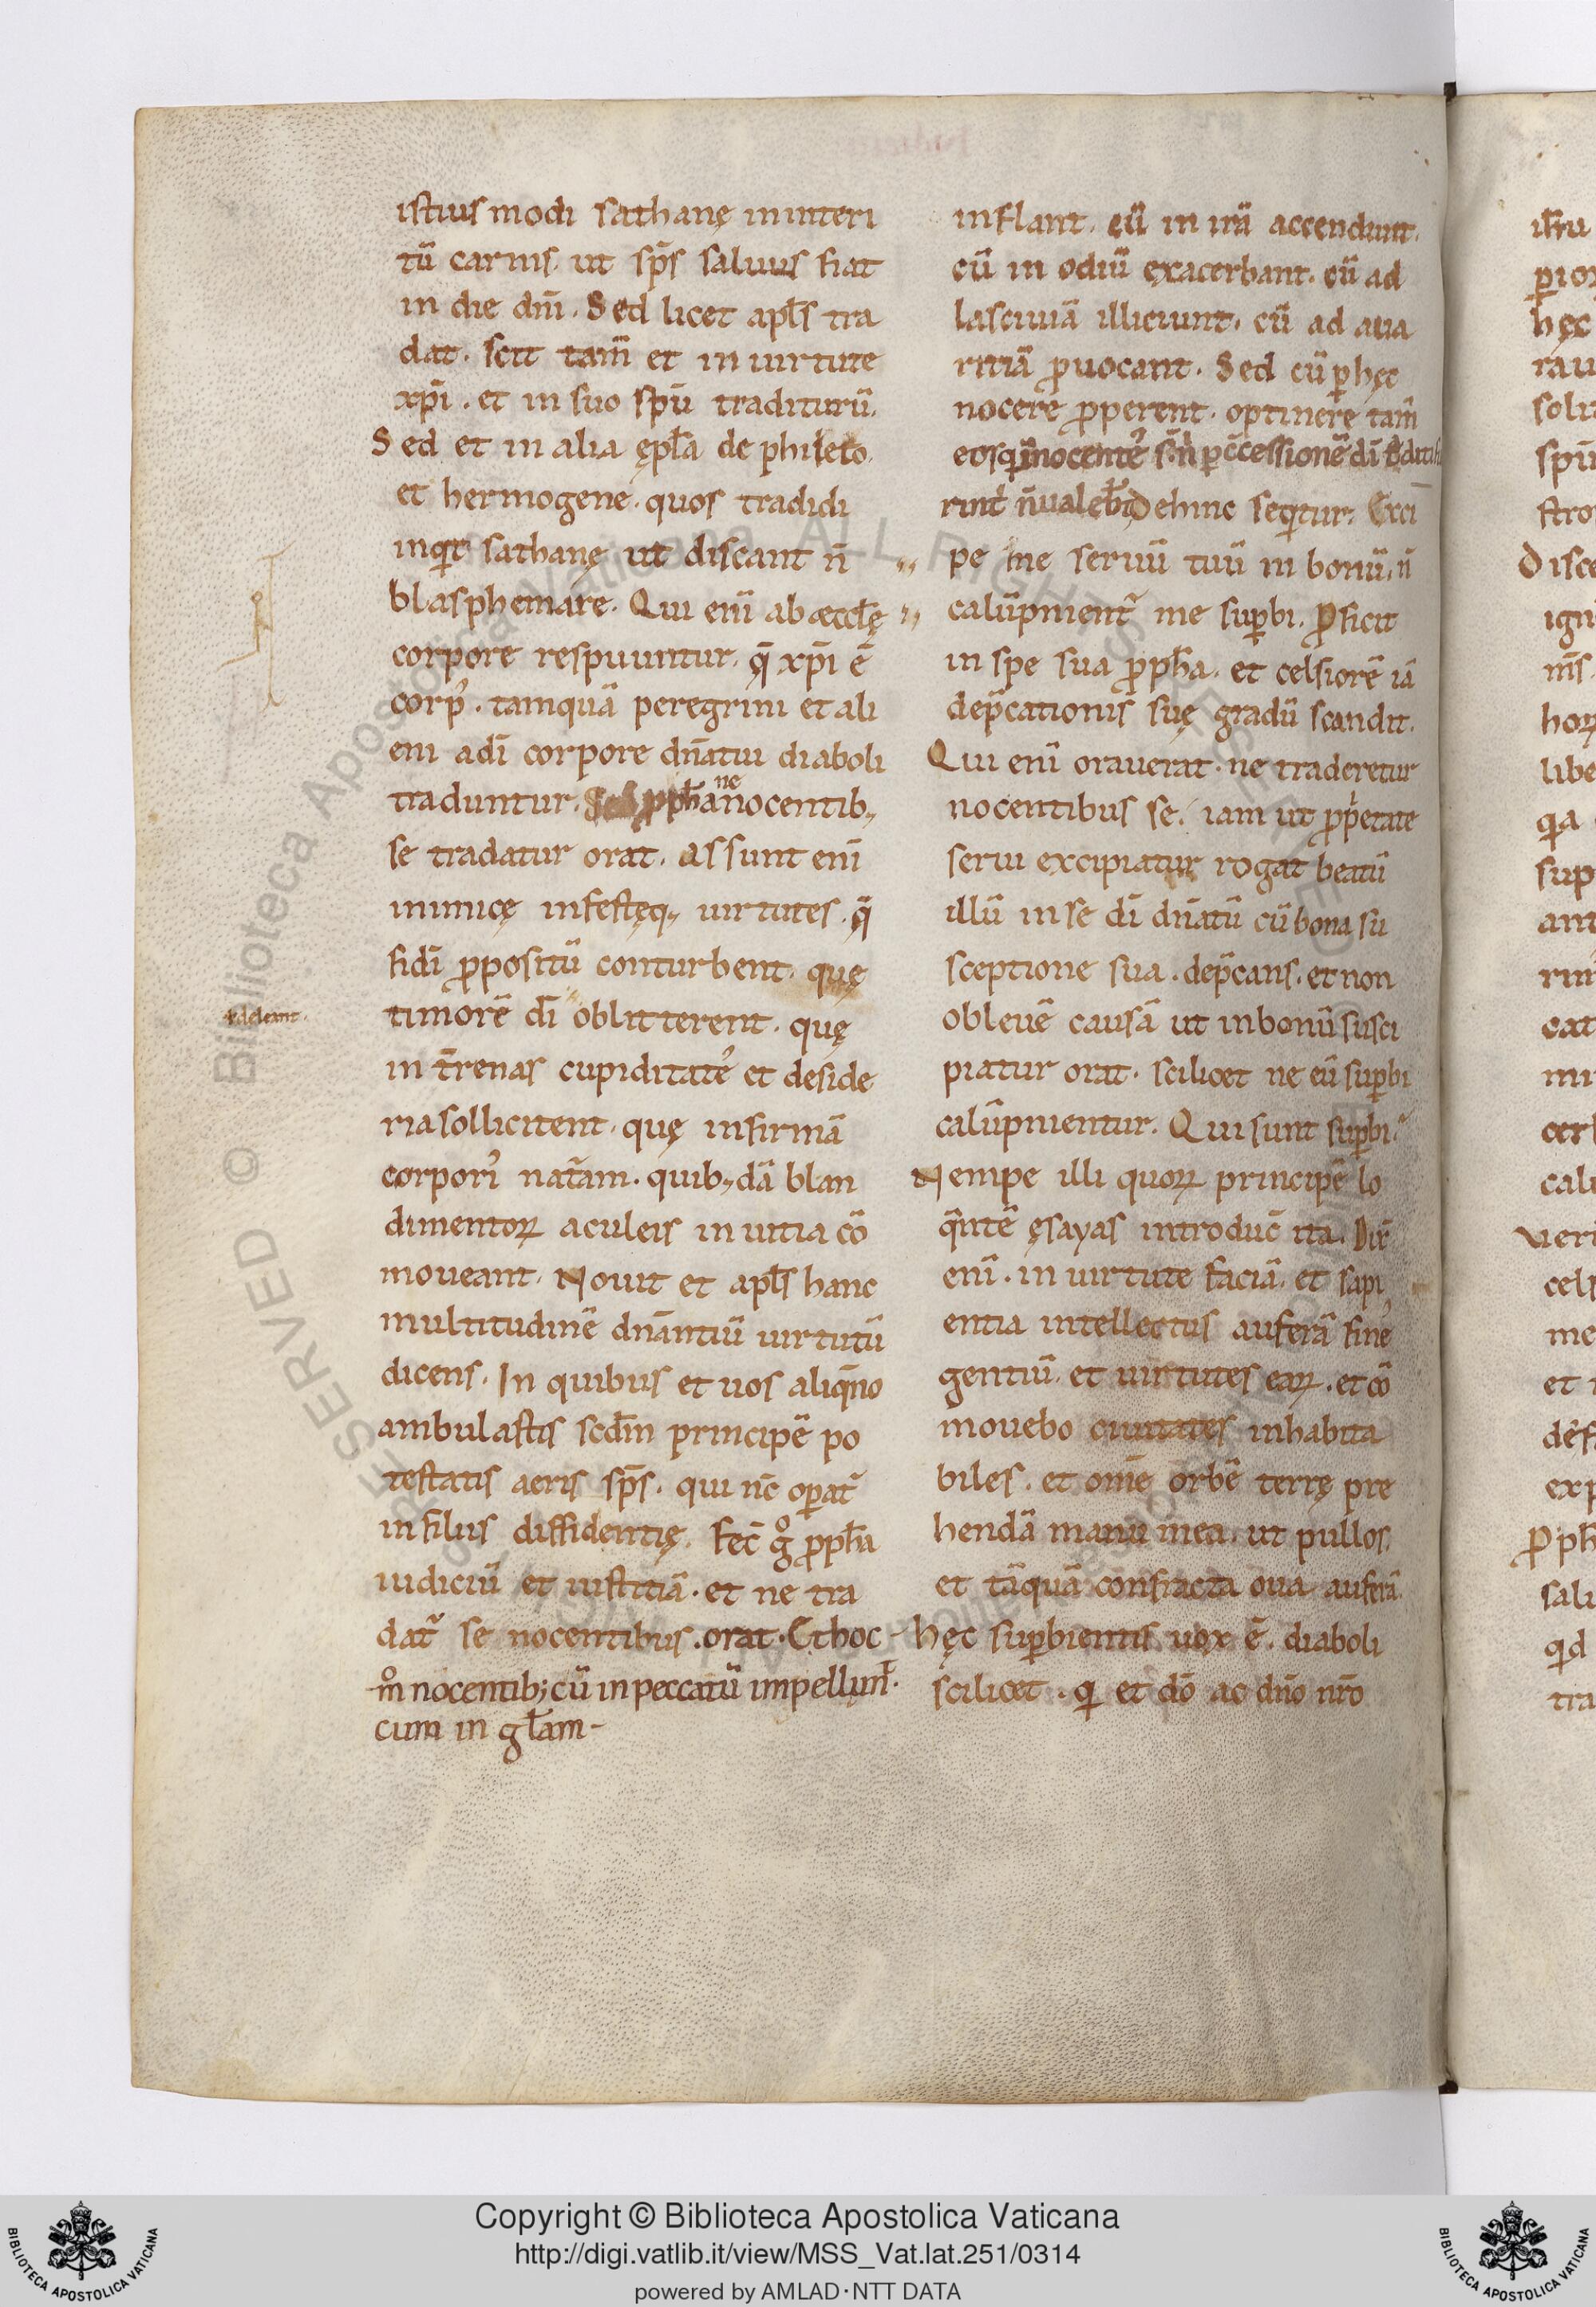 istius modi sathanę ininteri
tū carnis. ut sp̄s saluus fiat
in die dn̄i. Sed licet apl̄s tra
dat. scit tam̄ et in uirtute
xp̄i. et in suo sp̄u traditurū.
Sed et in alia ępl̄a de phileto.
et hermogene. quos tradidi
inquit sathanę ut discant n̄
blasphemare. Qui enī ab æccl̄ę
corpore respuuntur. q̄ xp̄i ē
corp᾽. tamquā peregrini et ali
eni a dī corpore dn̄atui diaboli
traduntur. pph̄a ne nocentib;
se tradatur orat. Assunt enī
inimicę infestęq; uirtutes. q̄
fidī propositū conturbent. quę
timorē dī oblitterent. quę
in t̄renas cupiditate᾽ et deside
ria sollicitent. quę infirmā
corpori᾽ nat̄am. quib;dā blan
dimentoꝝ aculeis in uitia cō
moueant. Nouit et apl̄s hanc
multitudinē dn̄antiū uirtutū
dicens. In quibus et uos aliq̄no
ambulastis scd̄m principē po
testatis aeris sp̄s. qui nc̄ opat̄
in filiis diffidentię. Fec̄ g° pph̄a
iudiciū et iustitiā. et ne tra
dat̄ se nocentibus. orat. Et hoc
m° nocentib; cū in peccatū impellunt̄.
cum in gl̄am-
inflant. cū in irā accendunt.
cū in odiū exacerbant. cū ad
lasciuiā illiciunt. cū ad aua
ritiā ꝓuocant. Sed cū ꝑ hęc
nocere ꝓperent. optinere tam̄
eos innocente᾽ dī
rint n̄ ualeb̄t Dehinc seqitur. Exci
pe me seruū tuū in bonū. n̄
calūpnient̄ me suꝑbi. Proficit
in spe sua ꝓph̄a. et celsiorē iā
dep̄cationis suę gradū scandit.
Qui enī orauerat. ne traderetur
nocentibus se. iam ut ꝓp̄etate
serui excipiatur rogat beatū
illū in se dī dn̄atū cū bona su
sceptione sua. dep̄cans. et non
obleuē causā ut in bonū susci
piatur orat. scilicet ne eū suꝑbi
calūpnientur. Qui sunt suꝑbi.
Nempe illi quoꝝ principē lo
q̄ntē ęsayas introduc̄ ita. Dix̄
enī. in uirtute faciā. et sapi
entia intellectus auferā fine᾽
gentiū. et uirtutes eaꝝ. et cō
mouebo ciuitates inhabita
biles. et om̄e orbē terrę pre
hendā manu mea. ut pullos.
et tāquā confracta oua auferā.
hęc suꝑbientis uox ē. diaboli
scilicet. qi et dō ac dn̄o nr̄o